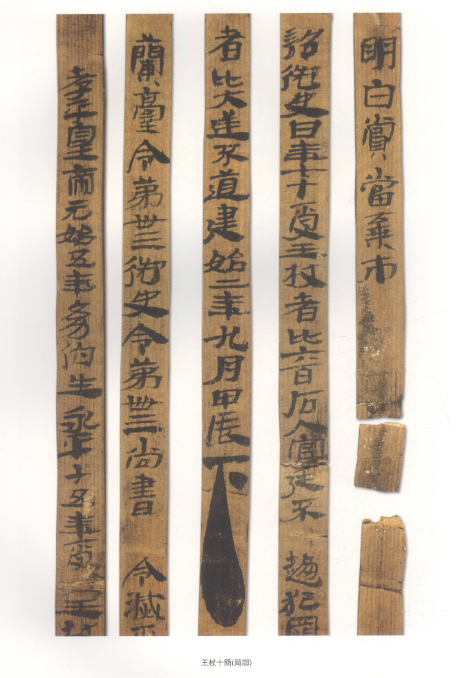 明白賞當棄市
詔御史曰年七十受王杖者比六百石入官廷不趨犯罪
者比大逆不道建始二年九月甲辰下
蘭臺令第卅三御史令第卅三尚書令滅
孝平皇帝元始五年幼伯生永平十五年受王杖
王杖十簡(局部)